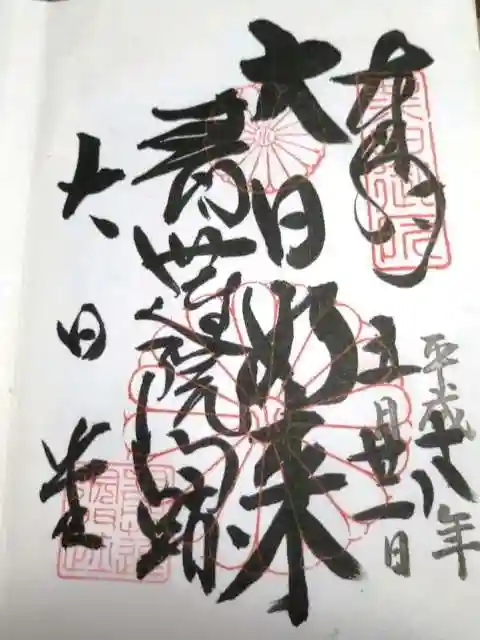 奉拝
平成十八年
五月廿一日
大日如来
青蓮院門跡
大日堂